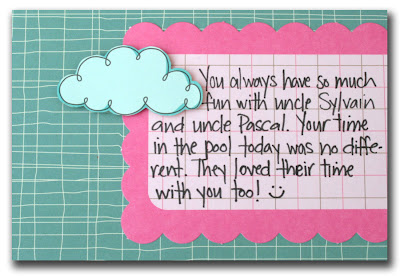 You always have so much
fun with uncle Sylvain
and uncle Pascal. Your time
in the pool today was no diffe-
rent. They loved their time
with you too! :)